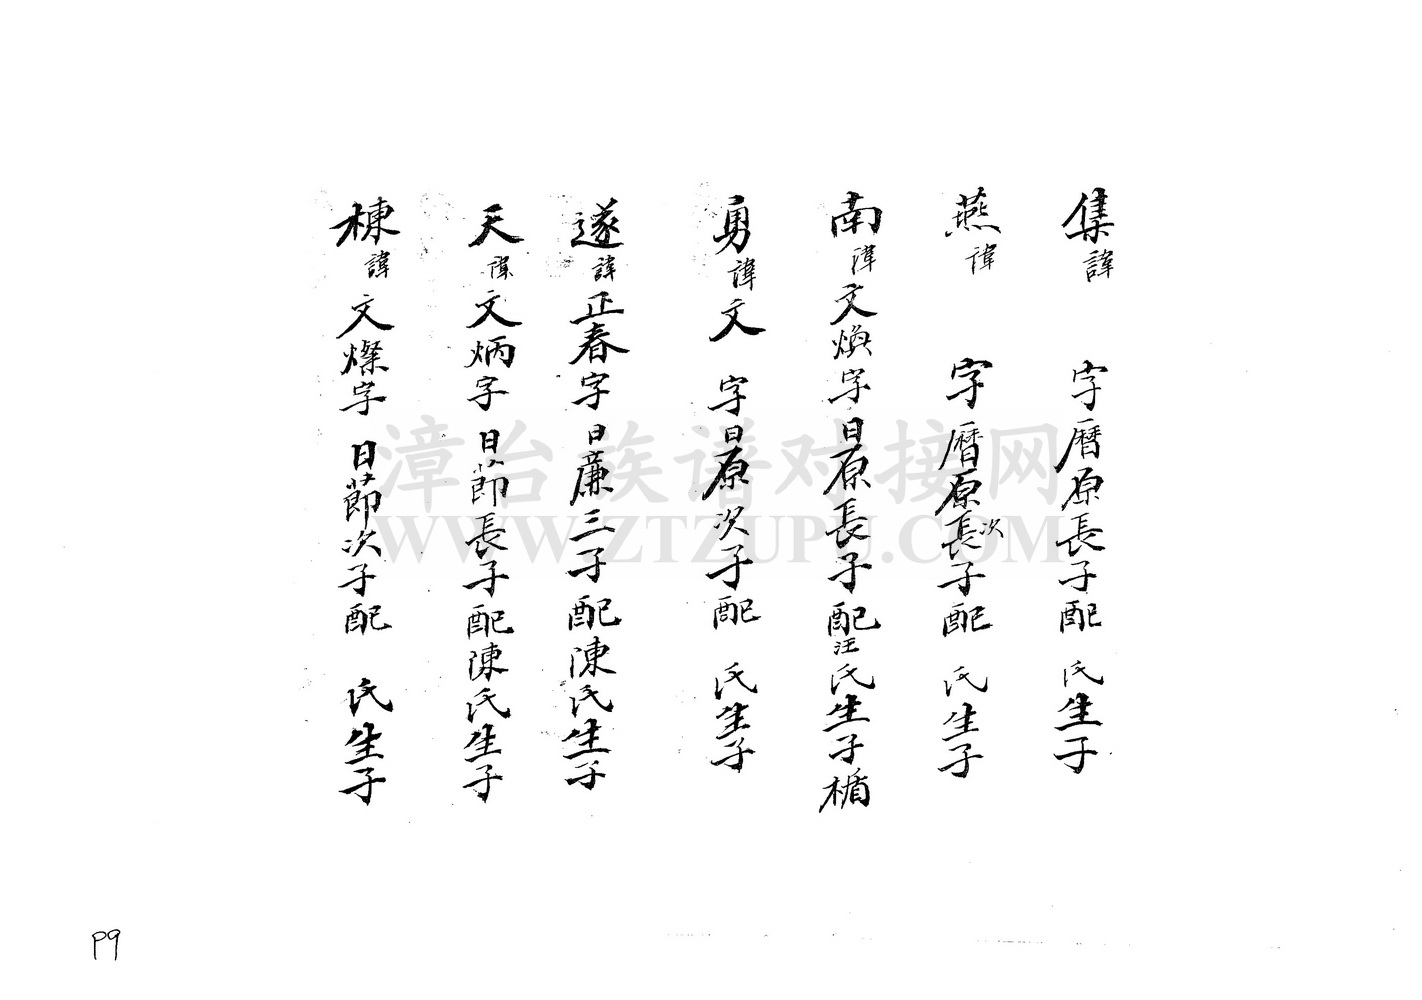 集諱 字曆原長子配 氏生子
燕諱 字曆原長次子配 氏生子
南諱文煥字日原長子配汪氏生子楯
勇諱文 字日原次子配 氏生子
遂諱正春字日廉三子配陳氏生子
天諱文炳字 日節長子配陳氏生子
棟諱文燦字 日節次子配 氏生子
漳台族谱对接网
WWW.ZTZUPU.COM
P9